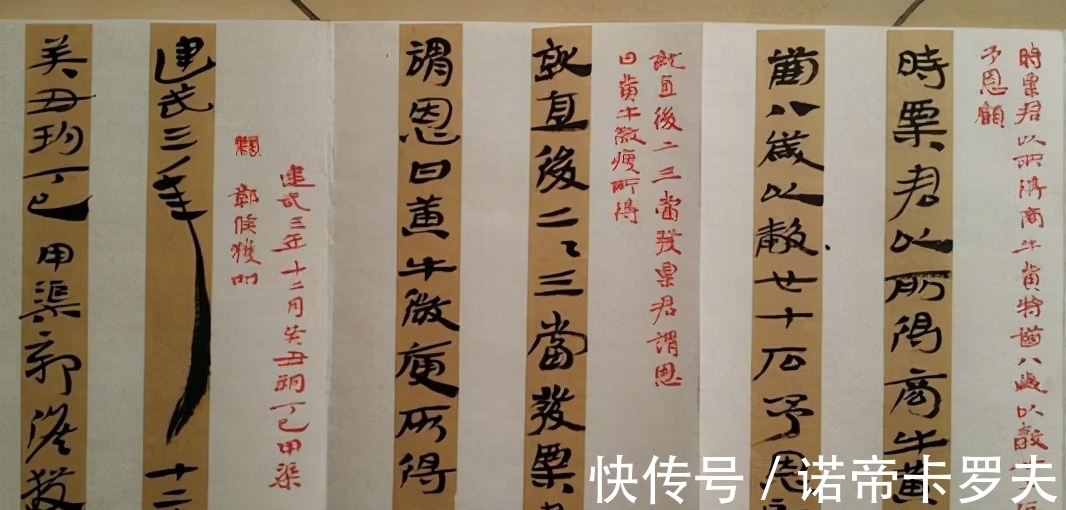 時粟君以所得商牛黃特齒八歲以穀
予恩顧
時粟君以所得商牛黃
齒八歲以穀卅十石予恩
就直後二三當發粟君謂恩
曰黃牛微瘦所得
就直後二〻三當發粟
謂恩曰黃牛微庾所得
建武三年十二月癸丑朔丁巳甲渠
鄣候獲叩
建武三年 十二
癸丑朔丁巳甲渠鄣
快传号 / 诺帝卡罗夫